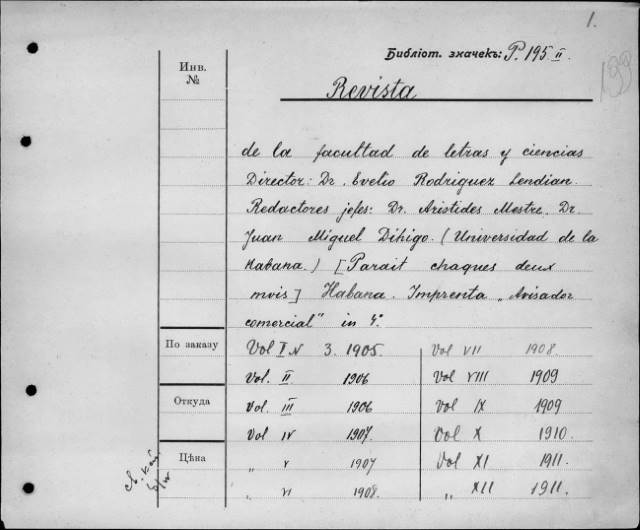 1.
Библіот. значекъ: P. 195 II.
199
Инв.
№
Revista
de la facultad de letras y ciencias
Director: Dr. Evelio Rodriguez Lendian.
Redactores jefes: Dr. Aristides Mestre, Dr.
Juan Miguel Dihigo. (Universidad de la
Habana.) [Parait chaques deux
mois] Habana. Imprenta „Avisador
comercial" in 4°
По заказу
Vol I N 3. 1905.
Vol. II 1906
Откуда
Vol. III 1906
Vol IV 1907.
Цѣна
„ V 1907
„ VI 1908.
Vol VII 1908
Vol VIII 1909
Vol IX 1909
Vol X 1910.
Vol XI 1911.
„ XII 1911.
св. кат.